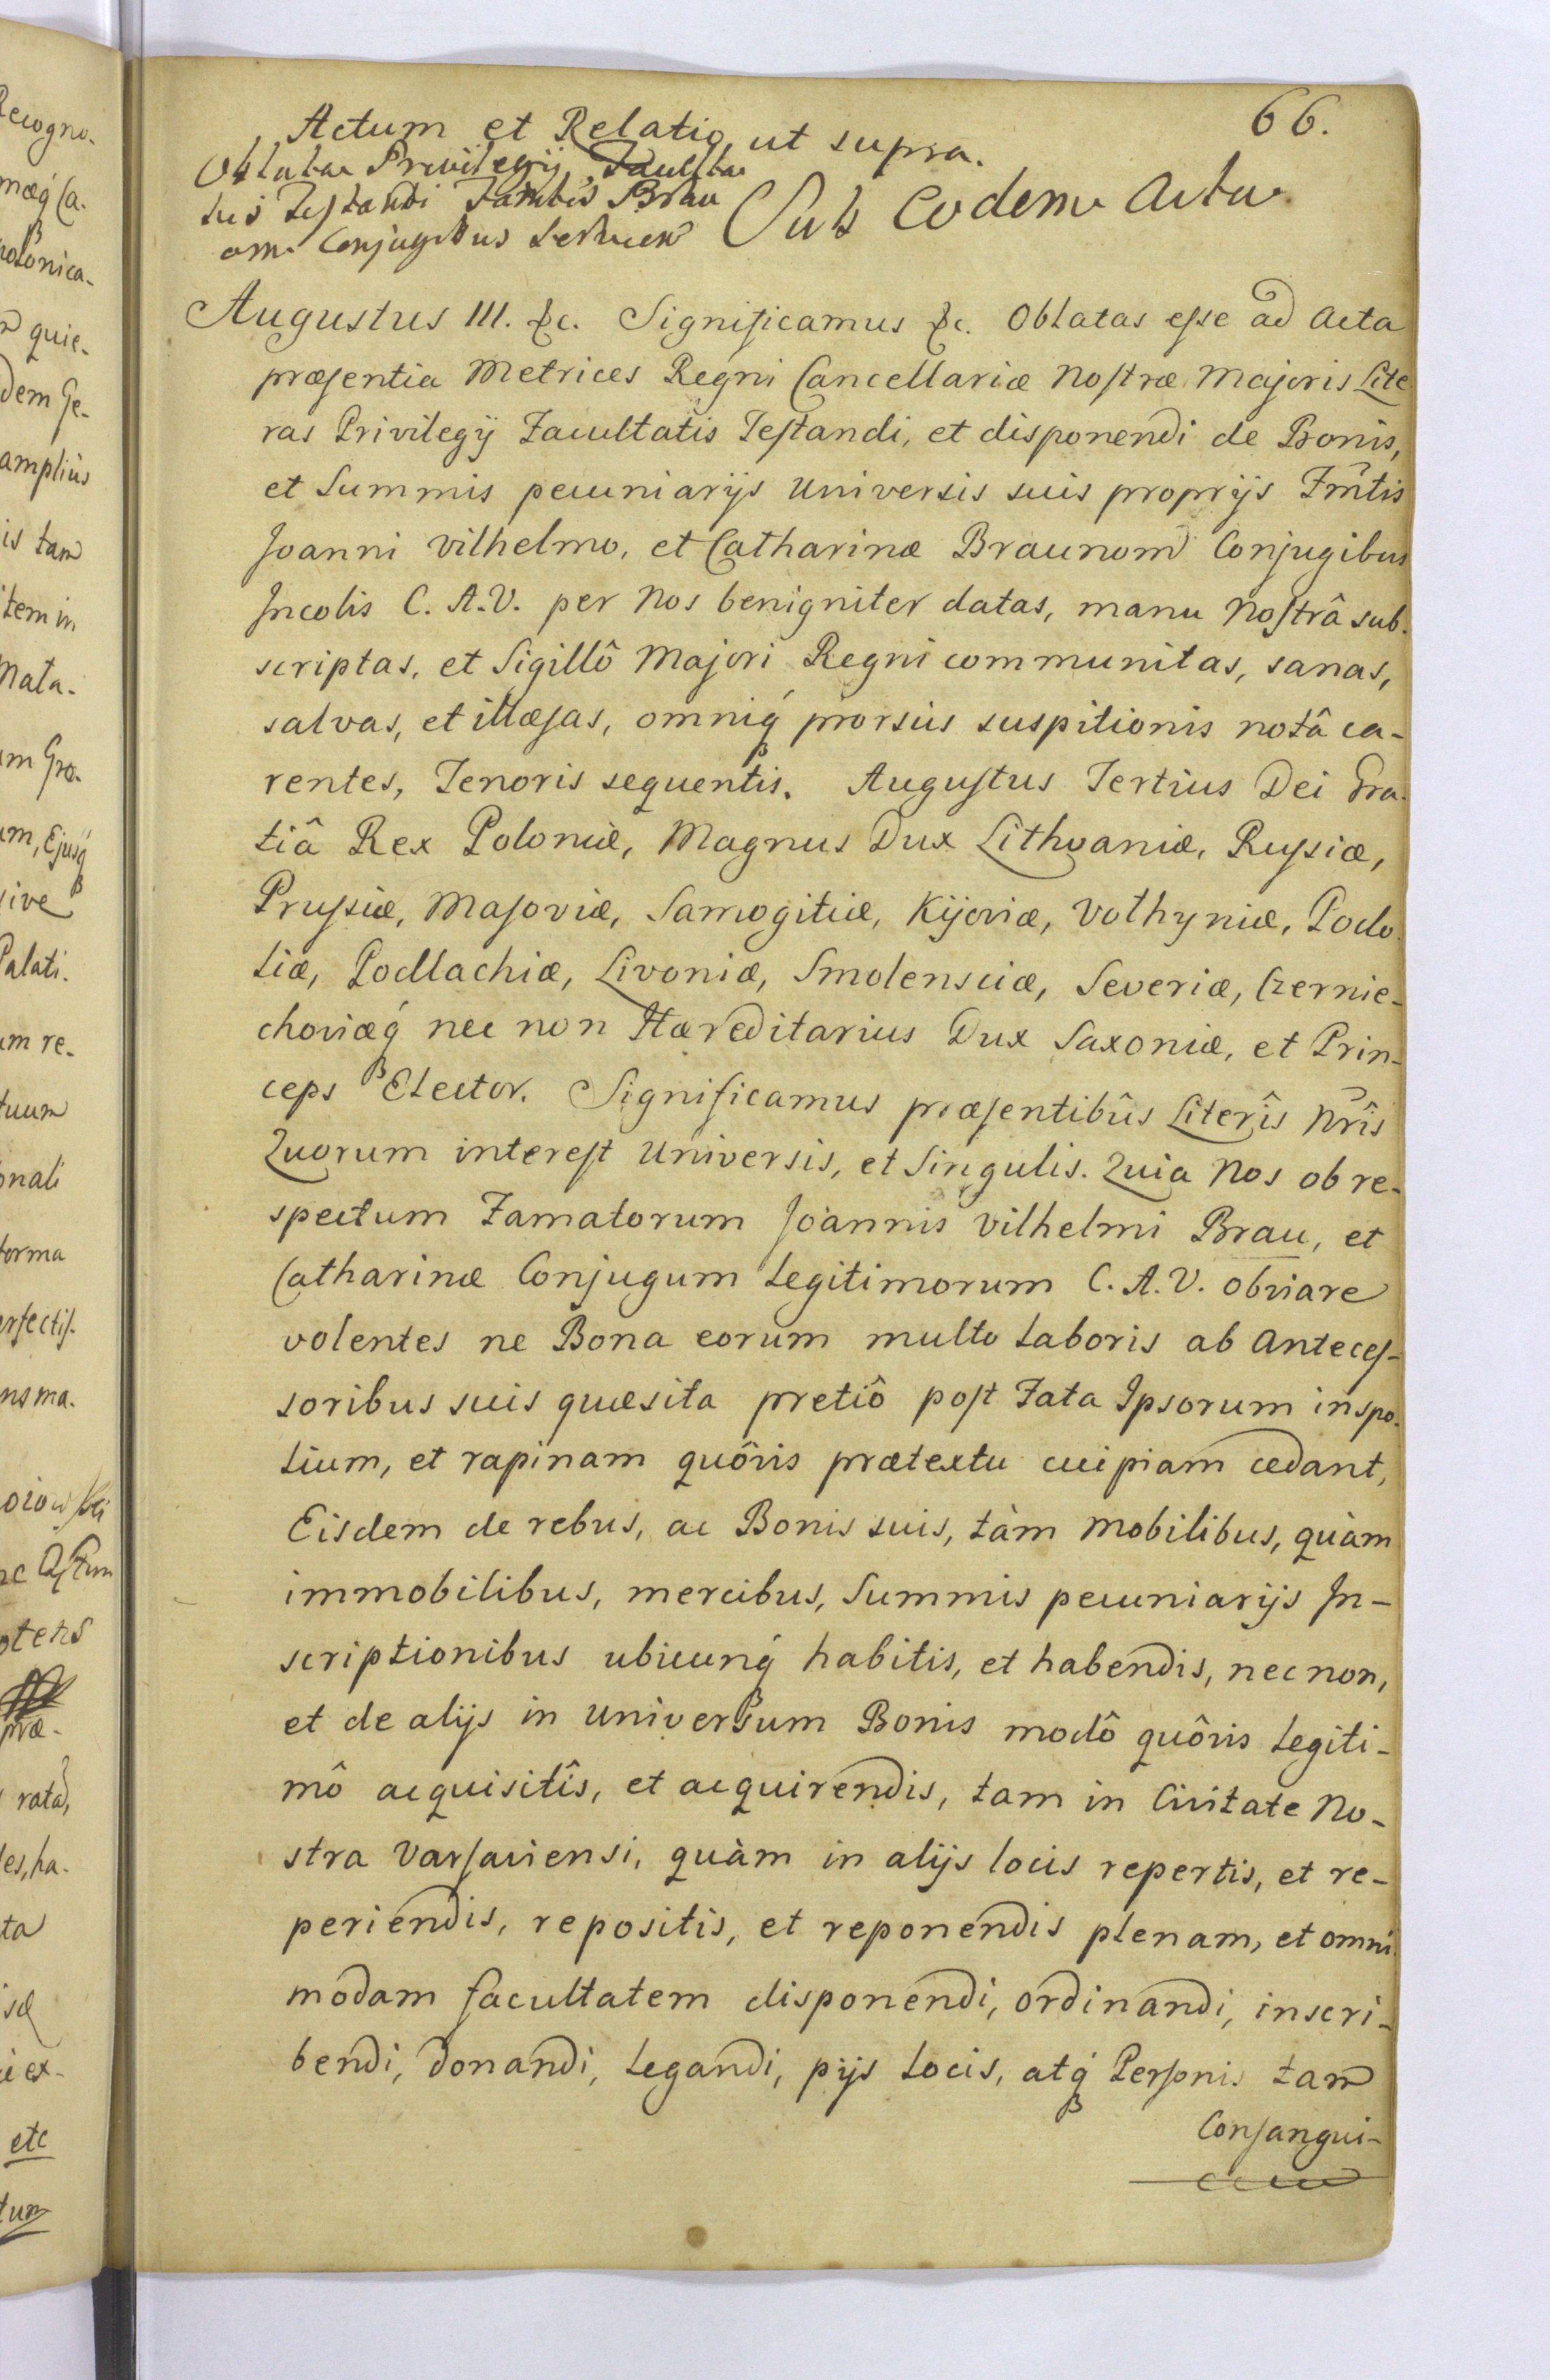 66.
Actum et Relatio ut supra.
Oblata Privilegij Faculta
tis Testandi Famtis Brau
om Conjugibus servien
Sub eodem Actu
Augustus III. &c. Significamus &c. Oblatas eſse ad Acta
præſentia Metrices Regni Cancellariæ Noſtræ Majoris Lite
ras Privilegÿ Facultatis Teſtandi, et disponendi de Bonis,
et Summis pecuniarÿs universis suis proprÿs Fm̃tis
Joanni Vilhelmo, et Catharinæ Braunom Conjugibus
Incolis C. A. V. per Nos benigniter datas, manu Noſtrâ sub-
scriptas, et Sigillô Majori Regni communitas, sanas,
salvas, et illæſas, omniq́ꝫ prorsus suspitionis notâ ca-
rentes, Tenoris sequentis. Auguſtus Tertius Dei Gra-
tiâ Rex Poloniæ, Magnus Dux Lithvaniæ, Ruſsiæ,
Pruſsiæ, Maſoviæ, Samogitiæ, Kijoviæ, Volhyniæ, Podo-
liæ, Podlachiæ, Livoniæ, Smolensciæ, Severiæ, Czernie-
choviæq́ꝫ nec non Hæreditarius Dux Saxoniæ, et Prin-
ceps Elector. Significamus præſentibûs Literîs Nr̃îs
Quorum intereſt Universis, et Singulis. Quia Nos ob re-
spectum Famatorum Joannis Vilhelmi Brau, et
Catharinæ Conjugum Legitimorum C. A. V. obviare
volentes ne Bona eorum multo laboris ab Anteceſ-
soribus suis quæsita pretiô poſt Fata Ipsorum in spo-
lium, et rapinam quôvis prætextu cuipiam cedant,
Eisdem de rebus, ac Bonis suis, tàm Mobilibus, quàm
immobilibus, mercibus, Summis pecuniarÿs In-
scriptionibus ubicunq́ꝫ habitis, et habendis, nec non,
et de alÿs in universum Bonis modô quôvis Legiti-
mô acquisitîs, et acquirendis, tam in Civitate No-
stra Varſaviensi, quàm in alÿs locis repertis, et re-
periendis, repositis, et reponendis plenam, et omni
modam facultatem disponendi, ordinandi, inscri-
bendi, donandi, legandi, pÿs Locis, atq́ꝫ Perſonis tam
Conſangui-